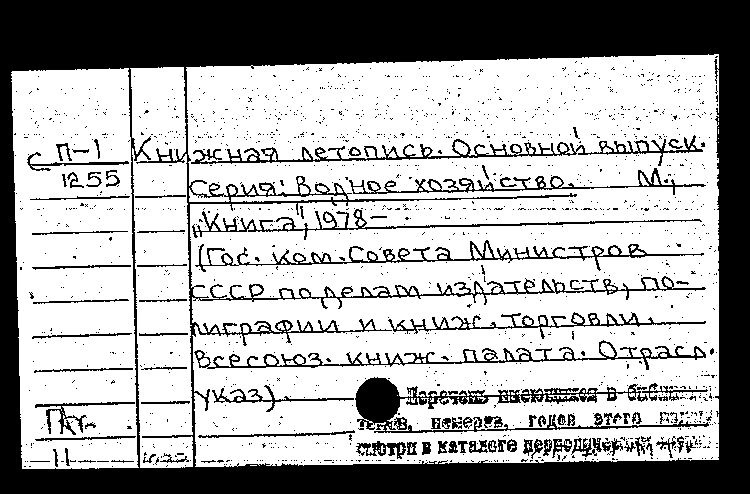 С П-1 Книжная летопись. Основной выпуск.
1255 Серия: Водное хозяйство. М.,
„Книга", 1978–
(Гос. ком. Совета Министров
СССР по делам издательств, по-
лиграфии и книж. торговли.
Всесоюз. книж. палата. Отрасл.
указ).
Перечень имеющихся в
номеров, годов этого
смотри в каталоге
11